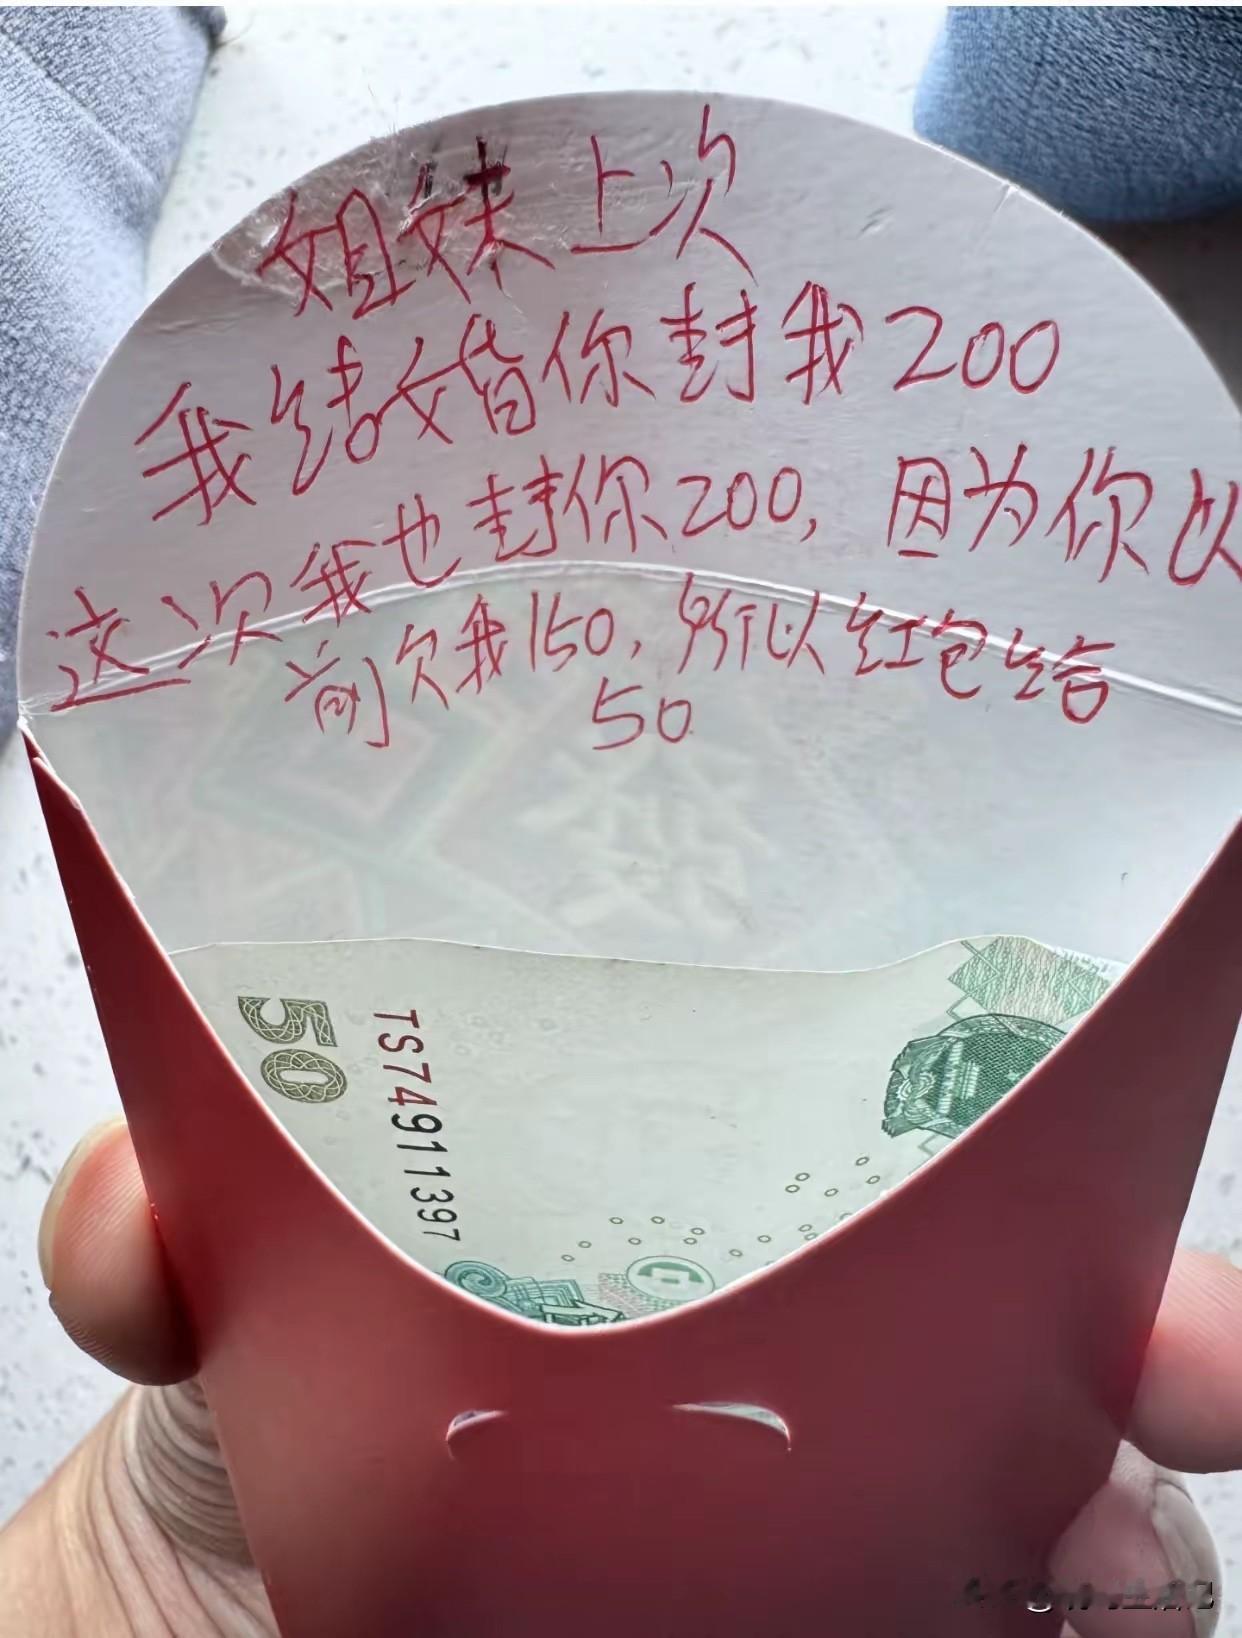 姐妹上次
我结婚你封我200
这次我也封你200,因为你以
前欠我150,所以红包给
50
50
TS74911397